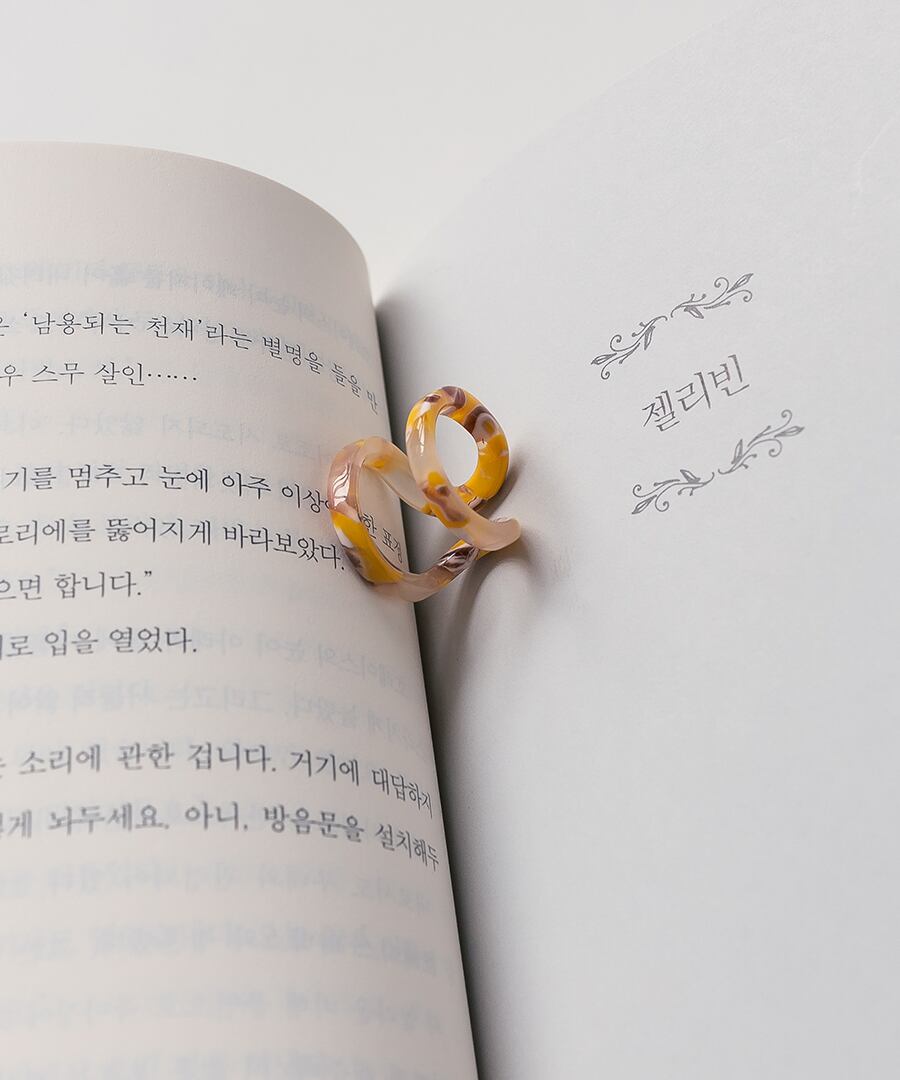 ‘남용되는 천재’라는 별명을 들을 만
우 스무 살인……
기를 멈추고 눈에 아주 이상한 표정
로리에를 뚫어지게 바라보았다.
으면 합니다.”
로 입을 열었다.
소리에 관한 겁니다. 거기에 대답하지
게 놔두세요. 아니, 방음문을 설치해두
젤리빈